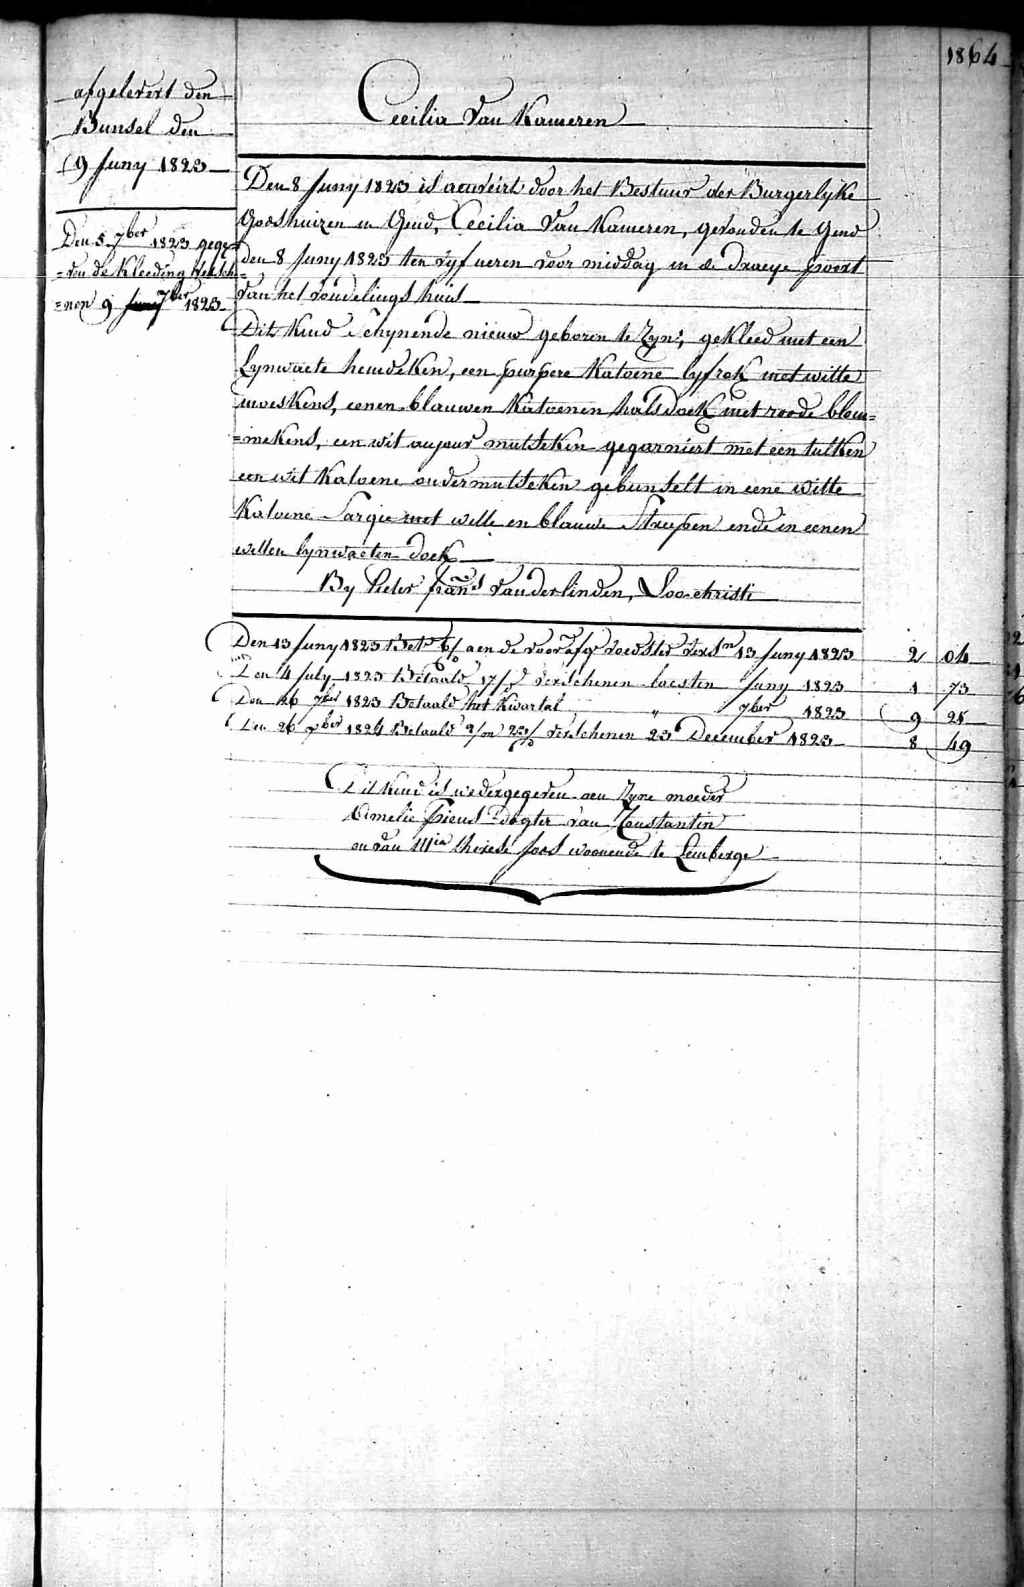 1864
afgelevert den
Bunsel den
19 Juny 1823
Den 5 7ber 1823 gege
=ven de Kleeding versch=
=nen 9 7ber 1823
Cecilia Van Kameren
Den 8 Juny 1823 is acureirt door het Bestuur der Burgerlyke
Godshuizen in Gend, Cecilia Van Kameren, gevonden te Gend
den 8 Juny 1823 ten vyf ueren voor middag in de Draeye poort
van het vondelings huis
Dit Kind schynende nieuw geboren te Zyn, gekleed met een
Lynwaete hemdeken, een purpere Katoene lyfrok met witte
moeskens, eenen blauwen Katoenen halsdoek met roode blom=
=mekens, een wit aujour mutseken gegarniert met een tulken
een wit Katoene ondermutseken gebunselt in eene witte
Katoene Sargie met witte en blauwe Streepen ende in eenen
witten lynwaeten doek
By Pieter frans vander linden, Loochristi
Den 13 Juny 1823 Bet. 6/ aen de voorafge voedster versn 13 Juny 1823 2 04
Den 4 July 1823 Betaald 17/ verschenen laesten Juny 1823 1 73
Den 26 7ber 1823 Betaald het Kwartal " 7ber 1823 9 25
Den 26 1824 Betaald 2/m 23/ verschenen 23 December 1823 8 49
Dit Kind is wedergegeven aen Zyne moeder
Amelie Siens Dogter van Constantin
en van Mia therese Joos woonende te Lemberge